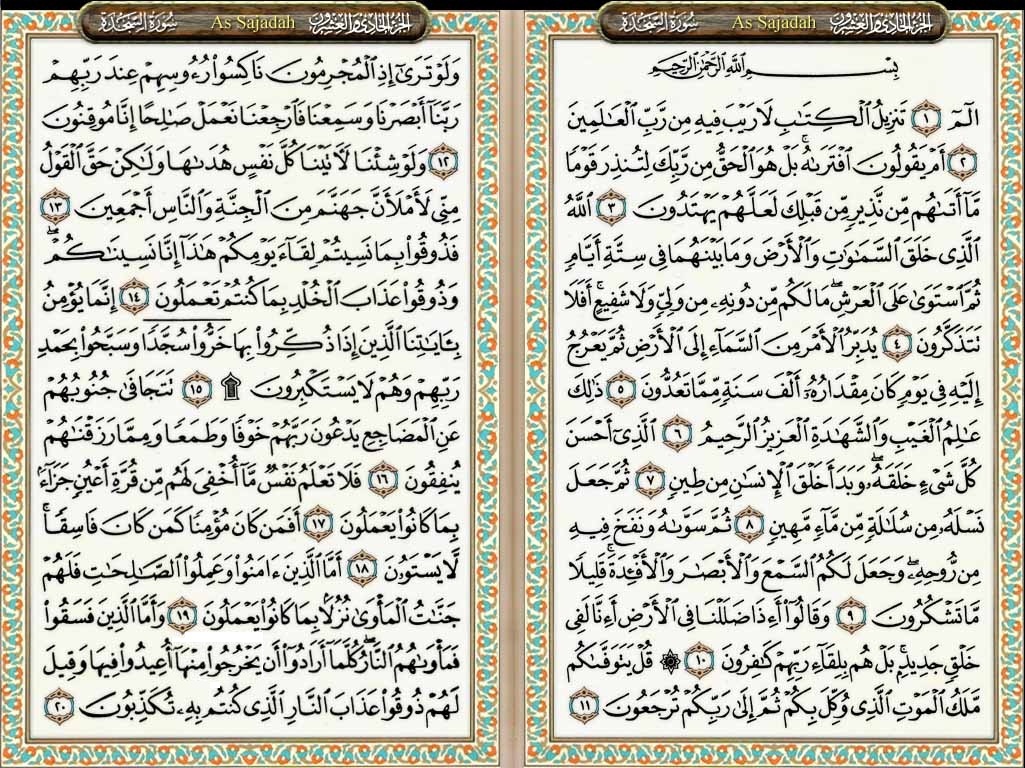 الجزء الحادي والعشرون As Sajadah سُورَةُ السَّجْدَةِ
بِسْمِ ٱللَّهِ ٱلرَّحْمَٰنِ ٱلرَّحِيمِ
الٓمٓ ١ تَنزِيلُ ٱلْكِتَٰبِ لَا رَيْبَ فِيهِ مِن رَّبِّ ٱلْعَٰلَمِينَ
٢ أَمْ يَقُولُونَ ٱفْتَرَىٰهُ ۚ بَلْ هُوَ ٱلْحَقُّ مِن رَّبِّكَ لِتُنذِرَ قَوْمًا
مَّآ أَتَىٰهُم مِّن نَّذِيرٍ مِّن قَبْلِكَ لَعَلَّهُمْ يَهْتَدُونَ ٣ ٱللَّهُ
ٱلَّذِى خَلَقَ ٱلسَّمَٰوَٰتِ وَٱلْأَرْضَ وَمَا بَيْنَهُمَا فِى سِتَّةِ أَيَّامٍ
ثُمَّ ٱسْتَوَىٰ عَلَى ٱلْعَرْشِ ۖ مَا لَكُم مِّن دُونِهِۦ مِن وَلِىٍّ وَلَا شَفِيعٍ ۚ أَفَلَا
تَتَذَكَّرُونَ ٤ يُدَبِّرُ ٱلْأَمْرَ مِنَ ٱلسَّمَآءِ إِلَى ٱلْأَرْضِ ثُمَّ يَعْرُجُ
إِلَيْهِ فِى يَوْمٍ كَانَ مِقْدَارُهُۥٓ أَلْفَ سَنَةٍ مِّمَّا تَعُدُّونَ ٥ ذَٰلِكَ
عَٰلِمُ ٱلْغَيْبِ وَٱلشَّهَٰدَةِ ٱلْعَزِيزُ ٱلرَّحِيمُ ٦ ٱلَّذِىٓ أَحْسَنَ
كُلَّ شَىْءٍ خَلَقَهُۥ ۖ وَبَدَأَ خَلْقَ ٱلْإِنسَٰنِ مِن طِينٍ ٧ ثُمَّ جَعَلَ
نَسْلَهُۥ مِن سُلَٰلَةٍ مِّن مَّآءٍ مَّهِينٍ ٨ ثُمَّ سَوَّىٰهُ وَنَفَخَ فِيهِ
مِن رُّوحِهِۦ ۖ وَجَعَلَ لَكُمُ ٱلسَّمْعَ وَٱلْأَبْصَٰرَ وَٱلْأَفْـِٔدَةَ ۚ قَلِيلًا
مَّا تَشْكُرُونَ ٩ وَقَالُوٓا۟ أَءِذَا ضَلَلْنَا فِى ٱلْأَرْضِ أَءِنَّا لَفِى
خَلْقٍ جَدِيدٍۭ ۚ بَلْ هُم بِلِقَآءِ رَبِّهِمْ كَٰفِرُونَ ١٠ ۞ قُلْ يَتَوَفَّىٰكُم
مَّلَكُ ٱلْمَوْتِ ٱلَّذِى وُكِّلَ بِكُمْ ثُمَّ إِلَىٰ رَبِّكُمْ تُرْجَعُونَ ١١
الجزء الحادي والعشرون As Sajadah سُورَةُ السَّجْدَةِ
وَلَوْ تَرَىٰٓ إِذِ ٱلْمُجْرِمُونَ نَاكِسُوا۟ رُءُوسِهِمْ عِندَ رَبِّهِمْ
رَبَّنَآ أَبْصَرْنَا وَسَمِعْنَا فَٱرْجِعْنَا نَعْمَلْ صَٰلِحًا إِنَّا مُوقِنُونَ
١٢ وَلَوْ شِئْنَا لَءَاتَيْنَا كُلَّ نَفْسٍ هُدَىٰهَا وَلَٰكِنْ حَقَّ ٱلْقَوْلُ
مِنِّى لَأَمْلَأَنَّ جَهَنَّمَ مِنَ ٱلْجِنَّةِ وَٱلنَّاسِ أَجْمَعِينَ ١٣
فَذُوقُوا۟ بِمَا نَسِيتُمْ لِقَآءَ يَوْمِكُمْ هَٰذَآ إِنَّا نَسِينَٰكُمْ ۖ
وَذُوقُوا۟ عَذَابَ ٱلْخُلْدِ بِمَا كُنتُمْ تَعْمَلُونَ ١٤ إِنَّمَا يُؤْمِنُ
بِـَٔايَٰتِنَا ٱلَّذِينَ إِذَا ذُكِّرُوا۟ بِهَا خَرُّوا۟ سُجَّدًا وَسَبَّحُوا۟ بِحَمْدِ
رَبِّهِمْ وَهُمْ لَا يَسْتَكْبِرُونَ ۩ ١٥ تَتَجَافَىٰ جُنُوبُهُمْ
عَنِ ٱلْمَضَاجِعِ يَدْعُونَ رَبَّهُمْ خَوْفًا وَطَمَعًا وَمِمَّا رَزَقْنَٰهُمْ
يُنفِقُونَ ١٦ فَلَا تَعْلَمُ نَفْسٌ مَّآ أُخْفِىَ لَهُم مِّن قُرَّةِ أَعْيُنٍ جَزَآءًۢ
بِمَا كَانُوا۟ يَعْمَلُونَ ١٧ أَفَمَن كَانَ مُؤْمِنًا كَمَن كَانَ فَاسِقًا ۚ
لَّا يَسْتَوُۥنَ ١٨ أَمَّا ٱلَّذِينَ ءَامَنُوا۟ وَعَمِلُوا۟ ٱلصَّٰلِحَٰتِ فَلَهُمْ
جَنَّٰتُ ٱلْمَأْوَىٰ نُزُلًۢا بِمَا كَانُوا۟ يَعْمَلُونَ ١٩ وَأَمَّا ٱلَّذِينَ فَسَقُوا۟
فَمَأْوَىٰهُمُ ٱلنَّارُ ۖ كُلَّمَآ أَرَادُوٓا۟ أَن يَخْرُجُوا۟ مِنْهَآ أُعِيدُوا۟ فِيهَا وَقِيلَ
لَهُمْ ذُوقُوا۟ عَذَابَ ٱلنَّارِ ٱلَّذِى كُنتُم بِهِۦ تُكَذِّبُونَ ٢٠